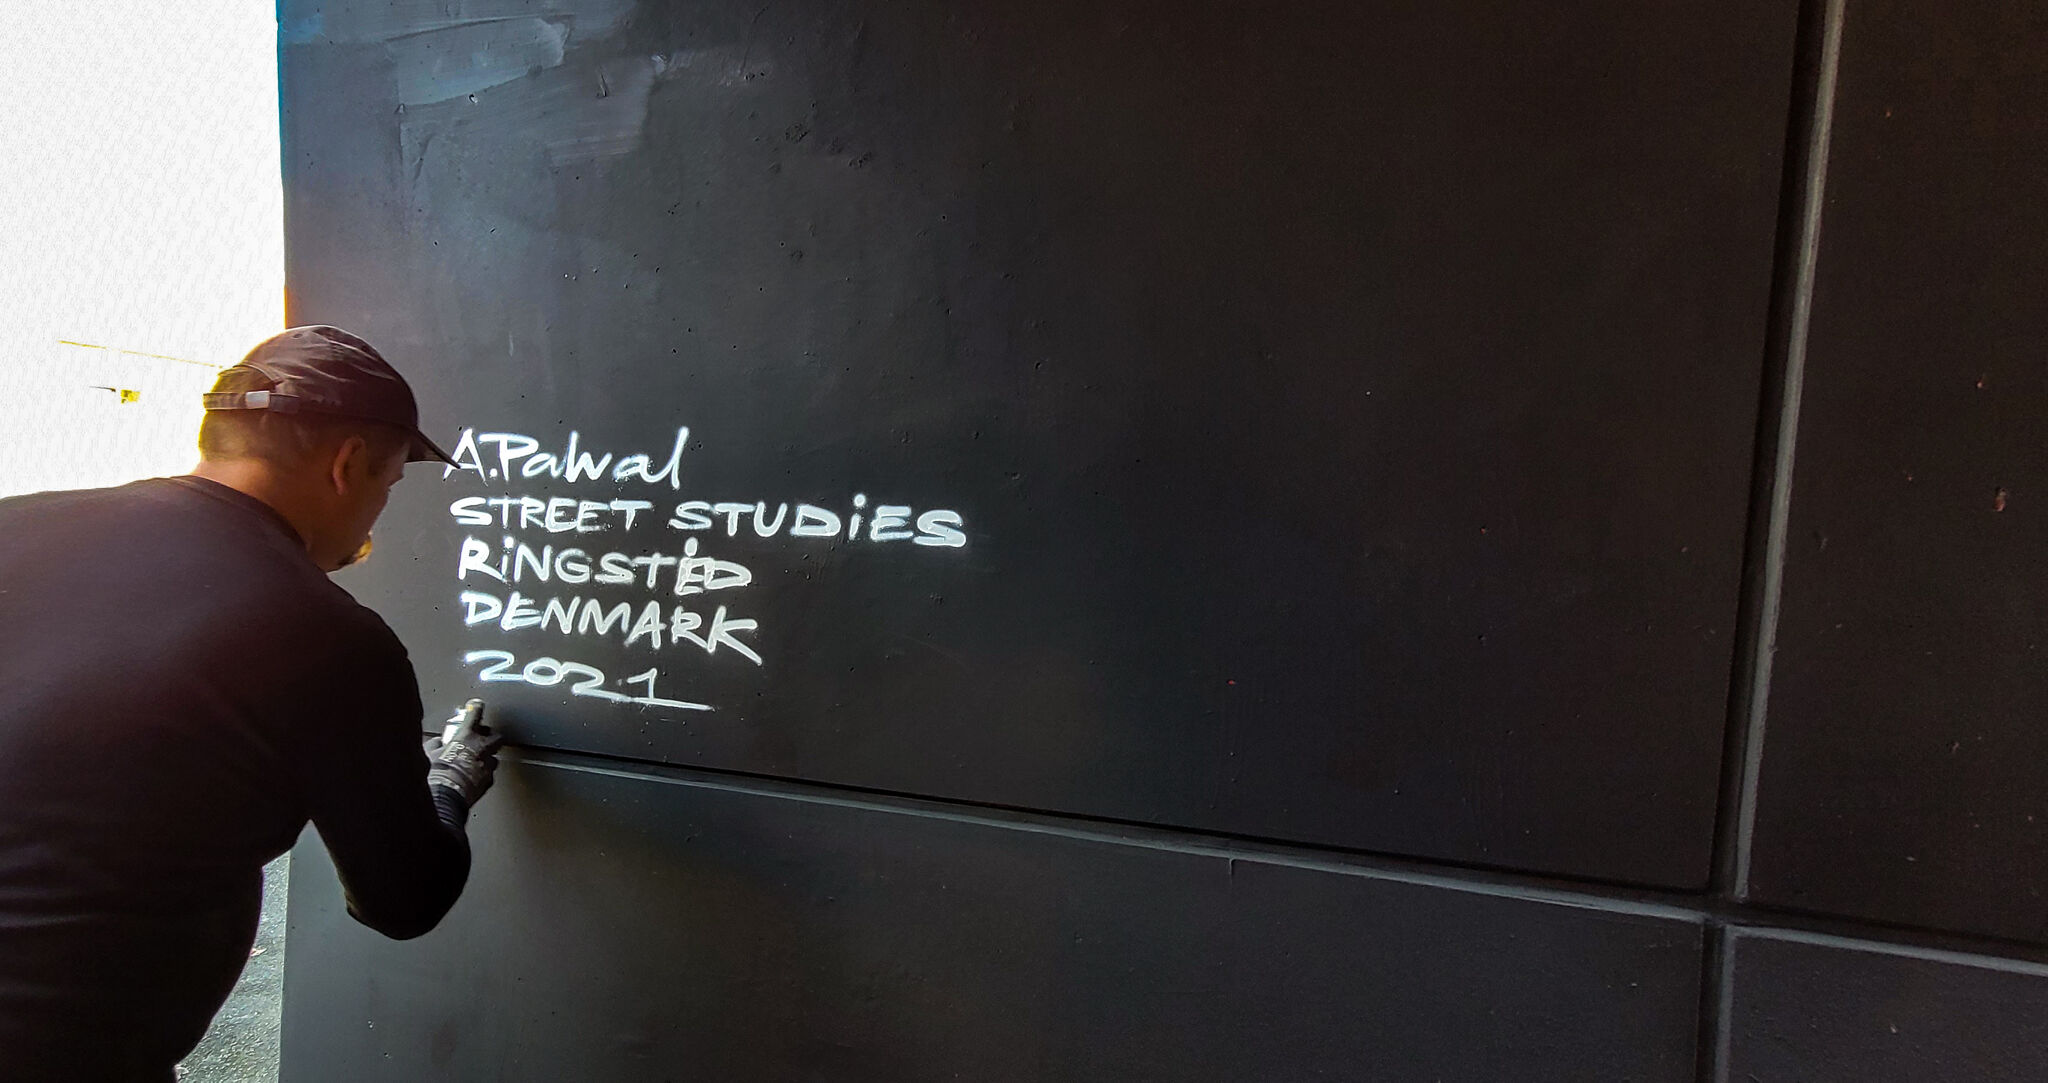 A.Palwal
STREET STUDiES
RiNGSTED
DENMARK
2021